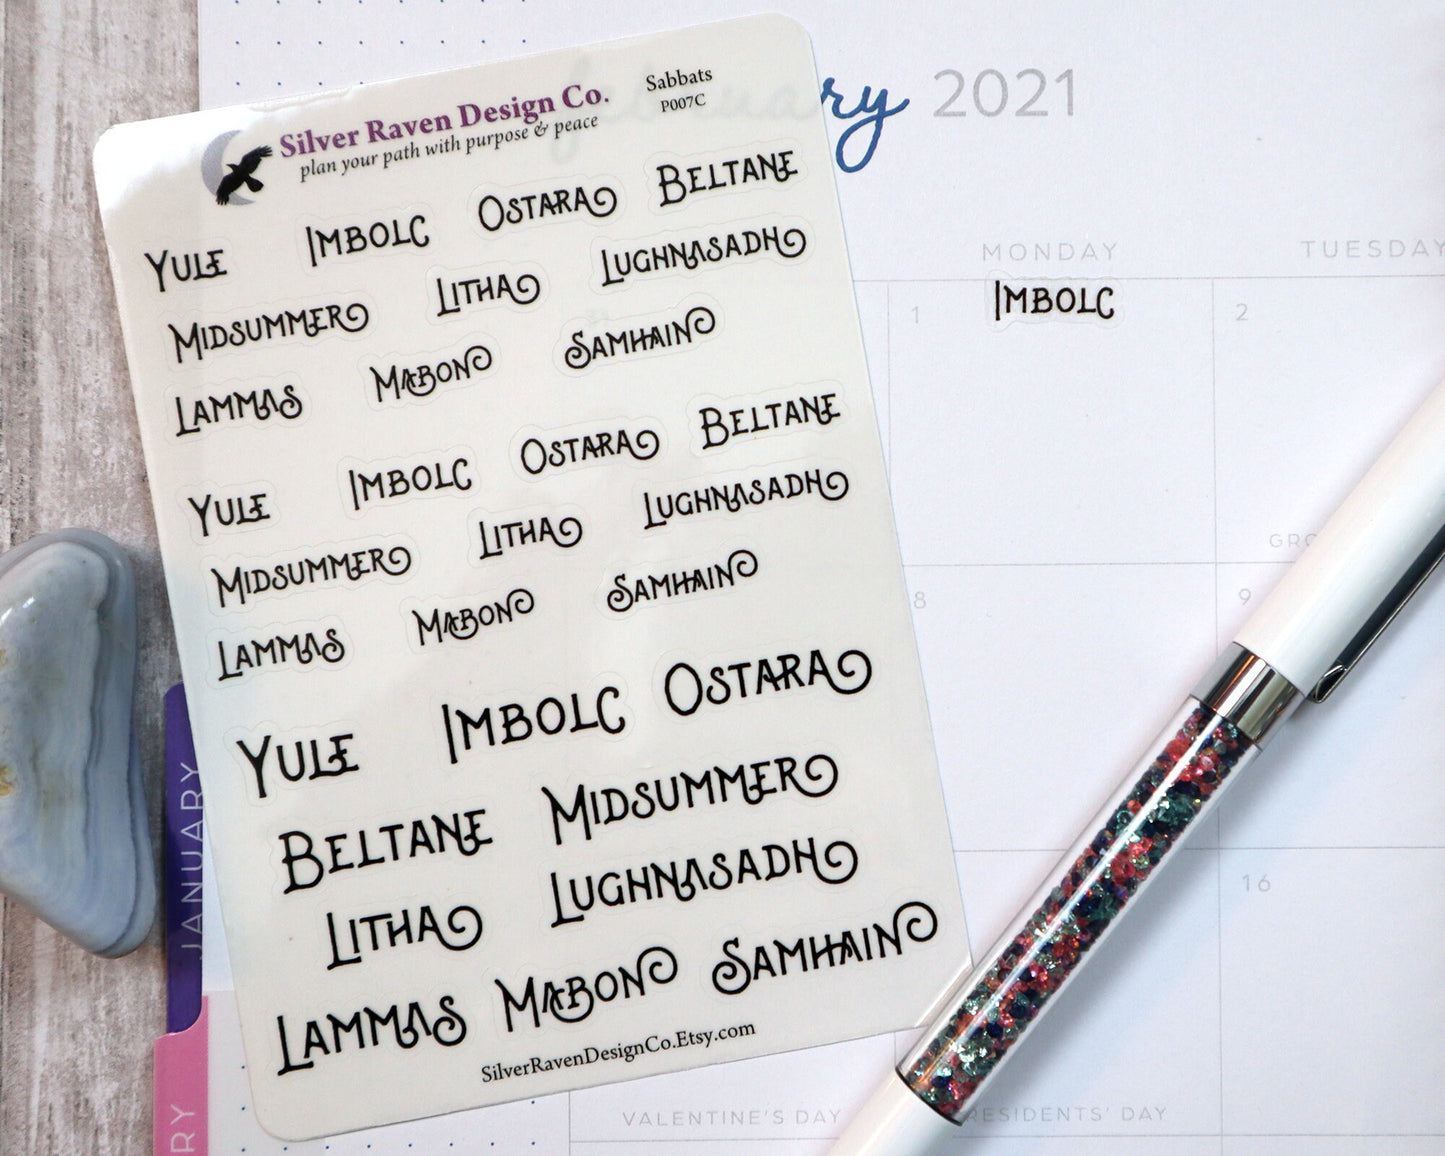 Silver Raven Design Co.
plan your path with purpose & peace
Sabbats
P007C
YULE IMBOLC OSTARA BELTANE
MIDSUMMER LITHA LUGHNASADH
LAMMAS MABON SAMHAIN
YULE IMBOLC OSTARA BELTANE
MIDSUMMER LITHA LUGHNASADH
LAMMAS MABON SAMHAIN
YULE IMBOLC OSTARA
BELTANE MIDSUMMER
LITHA LUGHNASADH
LAMMAS MABON SAMHAIN
SilverRavenDesignCo.Etsy.com
february 2021
MONDAY TUESDAY
1 IMBOLC 2
8 9
16
VALENTINE'S DAY RESIDENTS' DAY
JANUARY